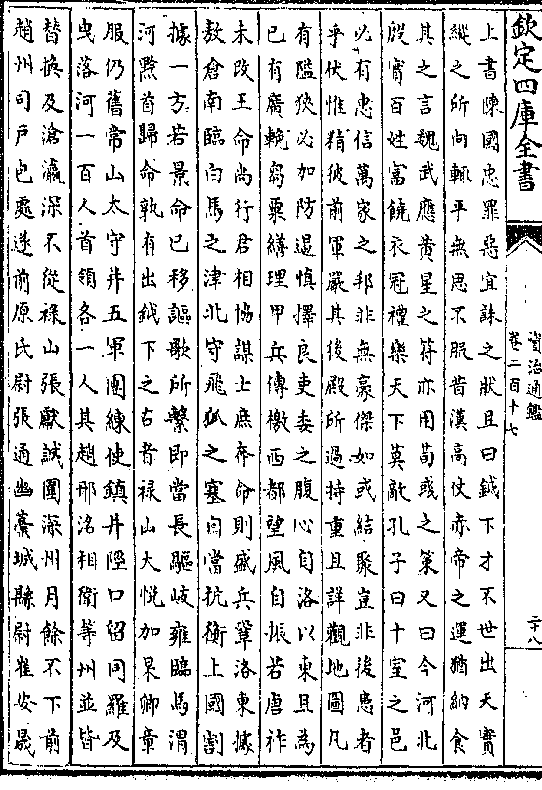 欽定四庫全書
資治通鑑
卷二百十七
二十八
上書陳國忠罪惡宜誅之狀且曰鉞下才不世出天實
縱之所向輒平無思不服昔漢高仗赤帝之運猶納食
其之言魏武應黃星之符亦用荀彧之策又曰今河北
殷實百姓富饒衣冠禮樂天下莫敵孔子曰十室之邑
必有忠信萬家之邦非無豪傑如或結聚豈非後患者
乎伏惟精彼前軍嚴其後殿所過持重且詳觀地圖凡
有隘狹必加防遏慎擇良吏委之腹心自洛以東且為
已有廣輓芻粟繕理甲兵傳檄西都望風自振若唐祚
未改王命尚行君相協謀士庶奔命則盛兵鞏洛東據
敖倉南臨白馬之津北守飛狐之塞自當抗衡上國割
據一方若景命已移謳歌所繫即當長驅岐雍臨馬渭
河黔首歸命孰有出鉞下之右者祿山大悅加杲卿章
服仍舊常山太守并五軍團練使鎮井陘口留同羅及
曳落河一百人首領各一人其趙邢洺相衛等州並皆
替換及滄瀛深不從祿山張獻誠圍深州月餘不下前
趙州司戶包處遂前原氏尉張通幽藁城縣尉崔安晟